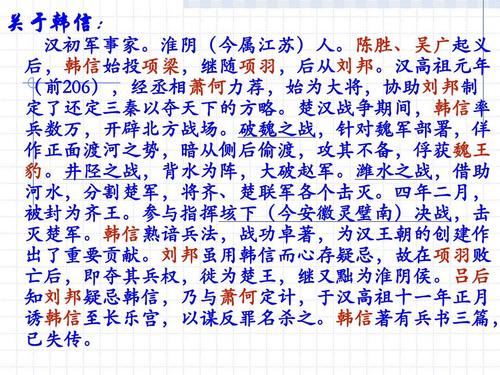 关于韩信：
汉初军事家。淮阴（今属江苏）人。陈胜、吴广起义
后，韩信始投项梁，继随项羽，后从刘邦。汉高祖元年
（前206），经丞相萧何力荐，始为大将，协助刘邦制
定了还定三秦以夺天下的方略。楚汉战争期间，韩信率
兵数万，开辟北方战场。破魏之战，针对魏军部署，佯
作正面渡河之势，暗从侧后偷渡，攻其不备，俘获魏王
豹。井陉之战，背水为阵，大破赵军。潍水之战，借助
河水，分割楚军，将齐、楚联军各个击灭。四年二月，
被封为齐王。参与指挥垓下（今安徽灵璧南）决战，击
灭楚军。韩信熟谙兵法，战功卓著，为汉王朝的创建作
出了重要贡献。刘邦虽用韩信而心存疑忌，故在项羽败
亡后，即夺其兵权，徙为楚王，继又黜为淮阴侯。吕后
知刘邦疑忌韩信，乃与萧何定计，于汉高祖十一年正月
诱韩信至长乐宫，以谋反罪名杀之。韩信著有兵书三篇，
已失传。